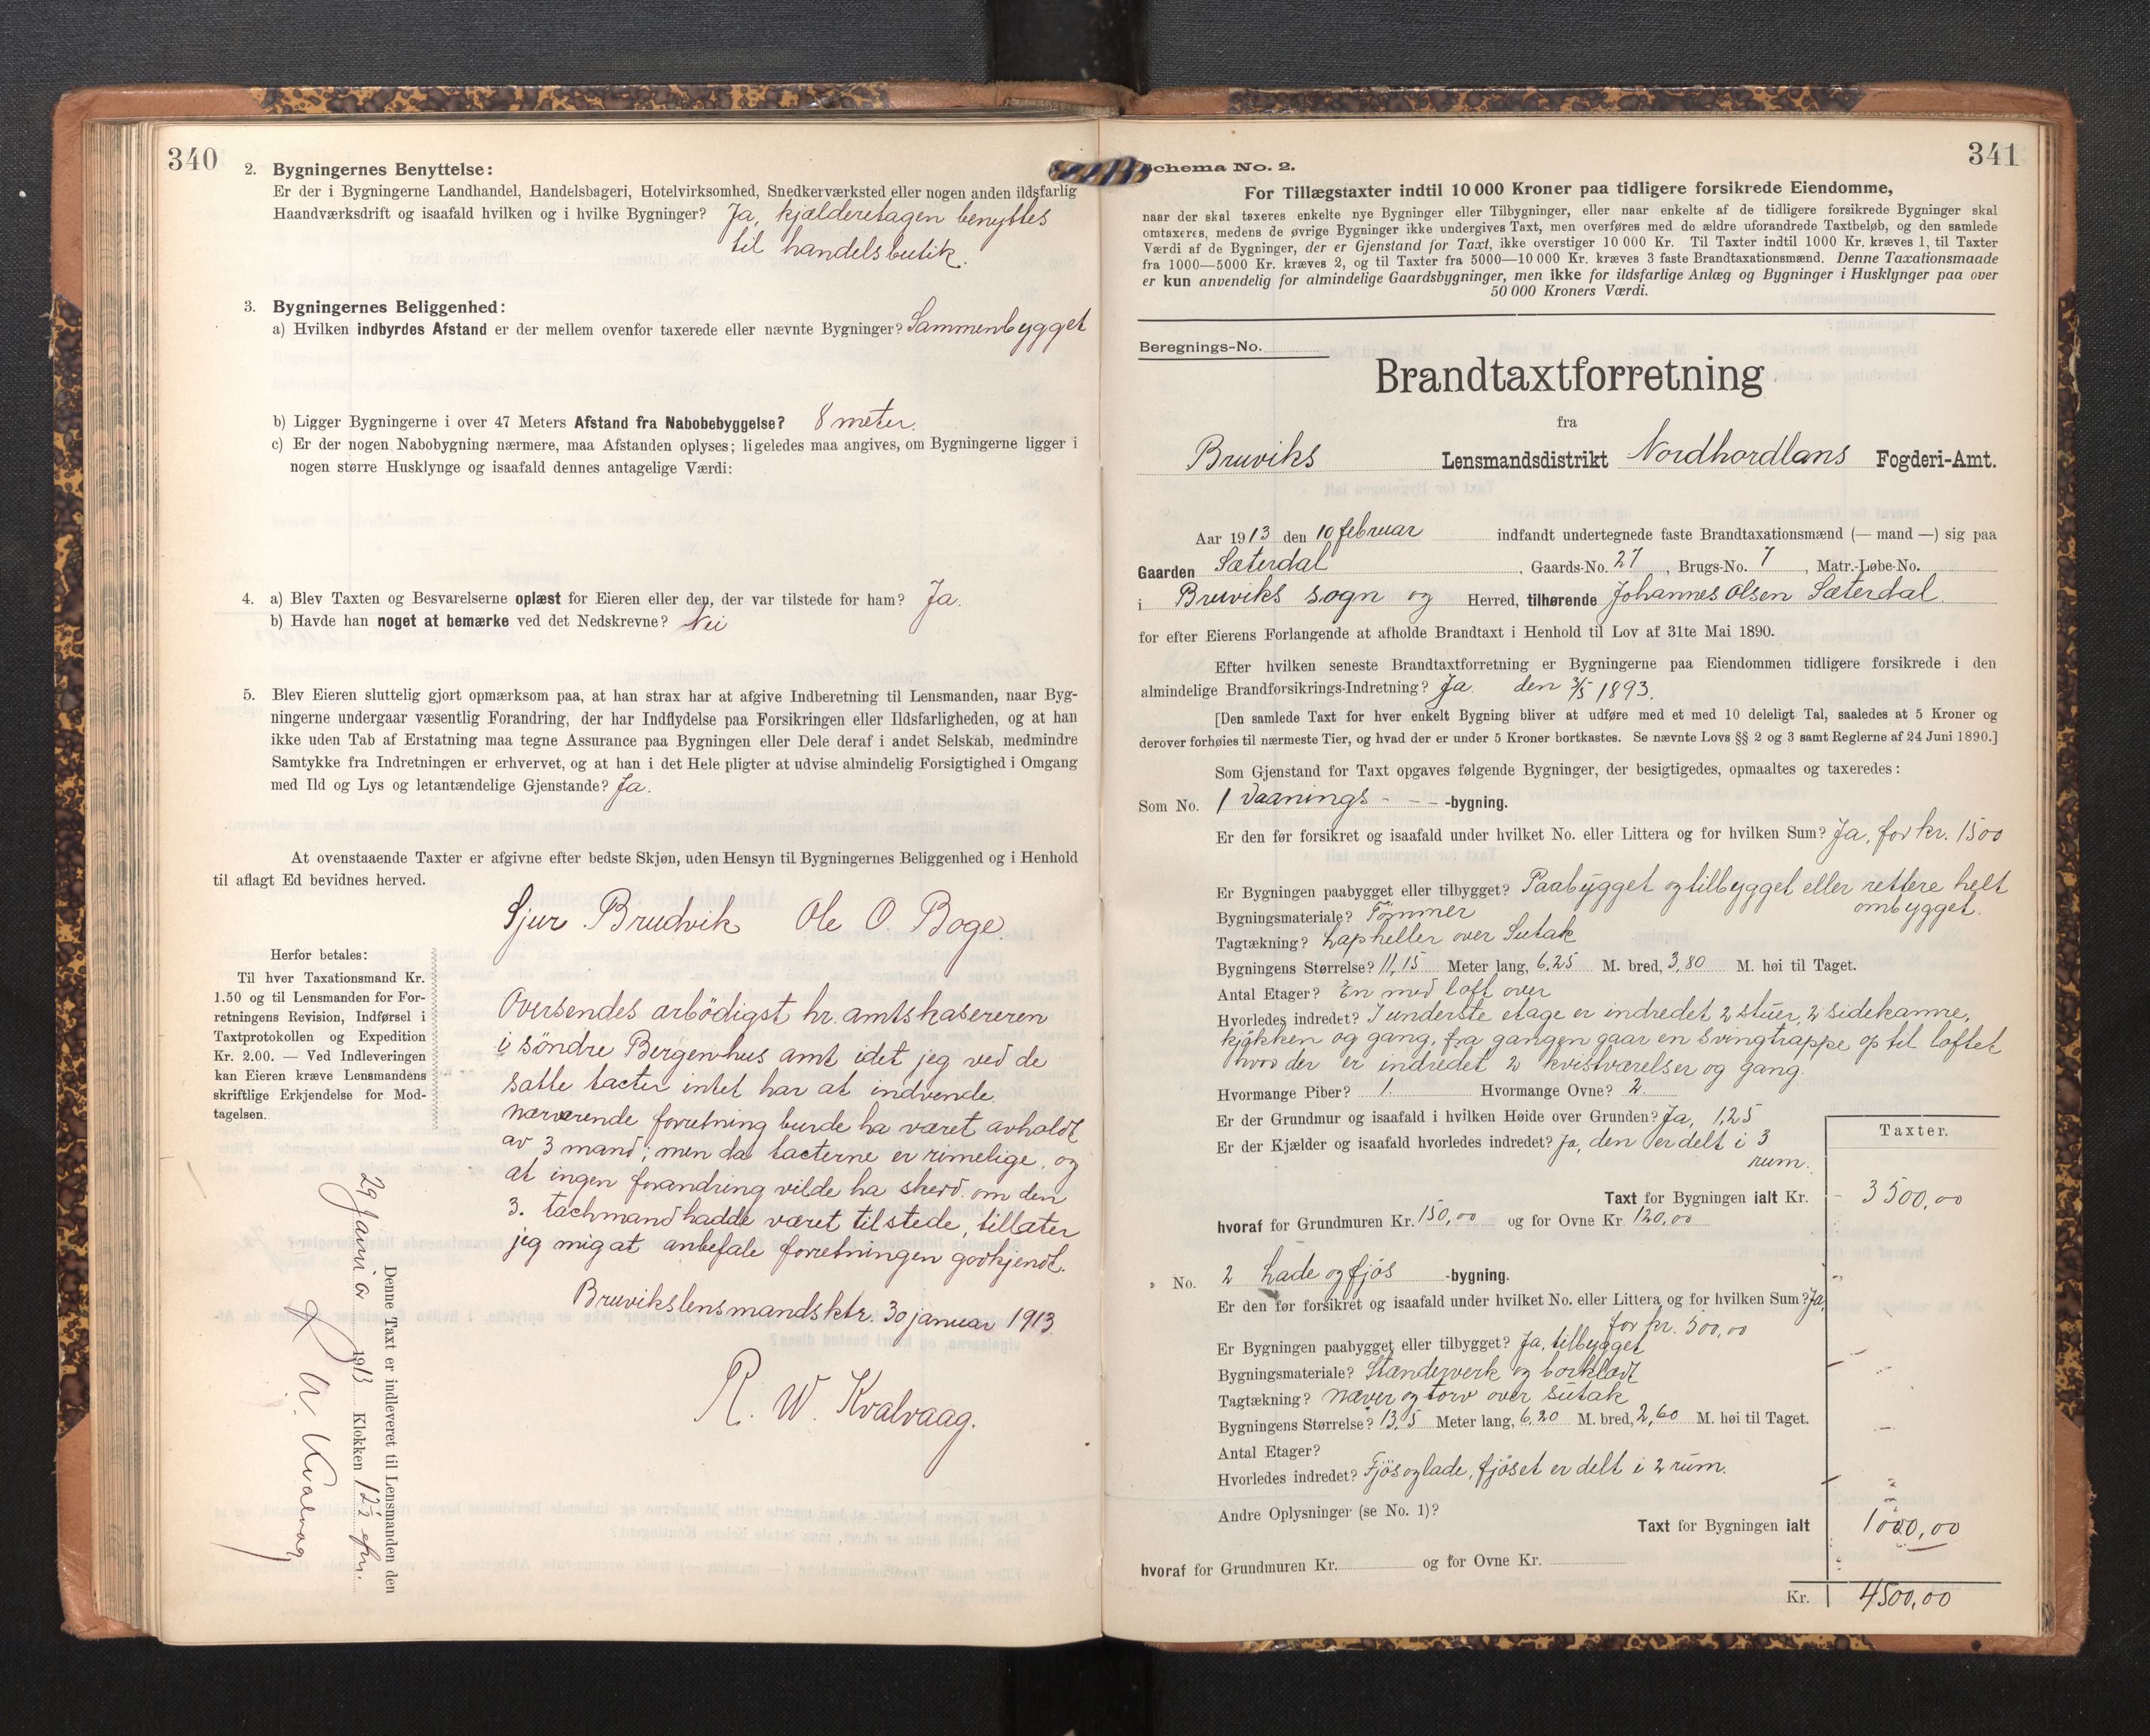 340
2. Bygningernes Benyttelse:
Er der i Bygningerne Landhandel, Handelsbageri, Hotelvirksomhed, Snedkerværksted eller nogen anden ildsfarlig
Haandværksdrift og isaafald hvilken og i hvilke Bygninger? Ja, kjælderetagen benyttes
til handelsbutik.
3. Bygningernes Beliggenhed:
a) Hvilken indbyrdes Afstand er der mellem ovenfor taxerede eller nævnte Bygninger? Sammenbygget
b) Ligger Bygningerne i over 47 Meters Afstand fra Nabobebyggelse? 8 meter.
c) Er der nogen Nabobygning nærmere, maa Afstanden oplyses; ligeledes maa angives, om Bygningerne ligger i
nogen større Husklynge og isaafald dennes antagelige Værdi:
4. a) Blev Taxten og Besvarelserne oplæst for Eieren eller den, der var tilstede for ham? Ja.
b) Havde han noget at bemærke ved det Nedskrevne? Nei
5. Blev Eieren sluttelig gjort opmærksom paa, at han strax har at afgive Indberetning til Lensmanden, naar Byg-
ningerne undergaar væsentlig Forandring, der har Indflydelse paa Forsikringen eller Ildsfarligheden, og at han
ikke uden Tab af Erstatning maa tegne Assurance paa Bygningen eller Dele deraf i andet Selskab, medmindre
Samtykke fra Indretningen er erhvervet, og at han i det Hele pligter at udvise almindelig Forsigtighed i Omgang
med Ild og Lys og letantændelige Gjenstande? Ja.
At ovenstaaende Taxter er afgivne efter bedste Skjøn, uden Hensyn til Bygningernes Beliggenhed og i Henhold
til aflagt Ed bevidnes herved.
Sjur Brudvik Ole O. Boge.
Herfor betales:
Til hver Taxationsmand Kr.
1.50 og til Lensmanden for For-
retningens Revision, Indførsel i
Taxtprotokollen og Expedition
Kr. 2.00. — Ved Indleveringen
kan Eieren kræve Lensmandens
skriftlige Erkjendelse for Mod-
tagelsen.
Oversendes arbödigst hr. amtskasereren
i söndre Bergenhus amt idet jeg ved de
satte tacter intet har at indvende.
Nærværende forretning burde ha været avholdt
av 3 mand; men da tacterne er rimelige, og
at ingen forandring vilde ha skedd om den
3. tachmand hadde været tilstede, tillater
jeg mig at anbefale forretningen godkjendt.
Bruvikslensmandsktr. 30 januar 1913.
R. W. Kvalvaag.
Denne Taxt er indleveret til Lensmanden den
29 Januar 1913 Klokken 12 1/2 efm.
R. W. Kvalvaag
341
Schema No. 2.
For Tillægstaxter indtil 10 000 Kroner paa tidligere forsikrede Eiendomme,
naar der skal taxeres enkelte nye Bygninger eller Tilbygninger, eller naar enkelte af de tidligere forsikrede Bygninger skal
omtaxeres, medens de øvrige Bygninger ikke undergives Taxt, men overføres med de ældre uforandrede Taxtbeløb, og den samlede
Værdi af de Bygninger, der er Gjenstand for Taxt, ikke overstiger 10 000 Kr. Til Taxter indtil 1000 Kr. kræves 1, til Taxter
fra 1000—5000 Kr. kræves 2, og til Taxter fra 5000—10 000 Kr. kræves 3 faste Brandtaxationsmænd. Denne Taxationsmaade
er kun anvendelig for almindelige Gaardsbygninger, men ikke for ildsfarlige Anlæg og Bygninger i Husklynger paa over
50 000 Kroners Værdi.
Beregnings-No.
Brandtaxtforretning
fra
Bruviks Lensmandsdistrikt Nordhordlans Fogderi-Amt.
Aar 1913 den 10 februar indfandt undertegnede faste Brandtaxationsmænd (— mand —) sig paa
Gaarden Sæterdal, Gaards-No. 27, Brugs-No. 7, Matr.-Løbe-No.
i Bruviks sogn og Herred, tilhørende Johannes Olsen Sæterdal.
for efter Eierens Forlangende at afholde Brandtaxt i Henhold til Lov af 31te Mai 1890.
Efter hvilken seneste Brandtaxtforretning er Bygningerne paa Eiendommen tidligere forsikrede i den
almindelige Brandforsikrings-Indretning? Ja. den 3/5 1893.
[Den samlede Taxt for hver enkelt Bygning bliver at udføre med et med 10 deleligt Tal, saaledes at 5 Kroner og
derover forhøies til nærmeste Tier, og hvad der er under 5 Kroner bortkastes. Se nævnte Lovs §§ 2 og 3 samt Reglerne af 24 Juni 1890.]
Som Gjenstand for Taxt opgaves følgende Bygninger, der besigtigedes, opmaaltes og taxeredes:
Som No. 1 Vaanings - - - -bygning.
Er den før forsikret og isaafald under hvilket No. eller Littera og for hvilken Sum? Ja, for kr. 1500
Er Bygningen paabygget eller tilbygget? Paabygget og tilbygget eller rettere helt
ombygget.
Bygningsmateriale? Tømmer
Tagtækning? Lapheller over Sutak
Bygningens Størrelse? 11,15 Meter lang, 6,25 M. bred, 3,80 M. høi til Taget.
Antal Etager? En med loft over
Hvorledes indret? I underste etage er indredet 2 stuer, 2 sidekamre,
kjøkken og gang, fra gangen gaar en Svingtrappe op til loftet
hvor der er indredet 2 kvistværelser og gang.
Hvormange Piber? 1. Hvormange Ovne? 2.
Er der Grundmur og isaafald i hvilken Høide over Grunden? Ja, 1,25
Er der Kjælder og isaafald hvorledes indredet? Ja, den er delt i 3
rum.
Taxter.
Taxt for Bygningen ialt Kr. 3500,00
hvoraf for Grundmuren Kr. 150,00 og for Ovne Kr. 120,00
" No. 2 Lade og fjøs -bygning.
Er den før forsikret og isaafald under hvilket No. eller Littera og for hvilken Sum? Ja,
for kr. 500,00
Er Bygningen paabygget eller tilbygget? Ja, tilbygget
Bygningsmateriale? Stænderverk og bordklædt
Tagtækning? Næver og torv over sutak
Bygningens Størrelse? 13,5 Meter lang, 6,20 M. bred, 2,60 M. høi til Taget.
Antal Etager?
Hvorledes indredet? Fjøs og lade, fjøset er delt i 2 rum.
Andre Oplysninger (se No. 1)?
Taxt for Bygningen ialt 1000,00
hvoraf for Grundmuren Kr. og for Ovne Kr.
Kr. 4500,00